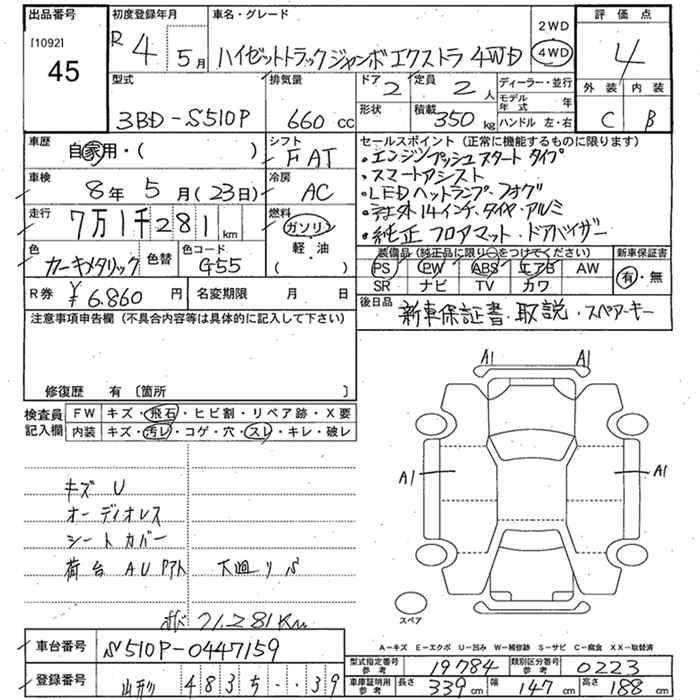 出品番号 初度登録年月 車名・グレード 評価点
[1092] R 4 5月 2WD
45 ハイゼットトラックジャンボエクストラ 4WD 4WD 4
型式 排気量 ドア 2 定員 2人 ディーラー・並行 外装 内装
モデル年式 年
3BD-S510P 660cc 形状 積載 350kg ハンドル 左・右 C B
車歴 自家用・( ) シフト FAT セールスポイント (正常に機能するものに限ります)
・エンジンプッシュスタートタイプ
車検 8年 5月(23日) 冷房 AC ・スマートアシスト
・LEDヘットランプ・フォグ
走行 7万1千281km 燃料 ガソリン 軽・油 ( ) 外14インチ、タイヤ・アルミ
・純正フロアマット・ドアバイザー
色 カーキメタリック 色替 色コード G55
装備品(純正品に限り○をつけてください) 新車保証書
PS PW ABS エアB AW 有・無
SR ナビ TV カワ
R券 ¥6.860円 名変期限 月 日
後日品 新車保証書・取説・スペアーキー
注意事項申告欄(不具合内容等は具体的に記入して下さい)
修復歴 有〔箇所 〕
検査員記入欄 FW キズ・飛石・ヒビ割・リペア跡・X要
内装 キズ・汚レ・コゲ・穴・スレ・キレ・破レ
A1 A1
A1 A1
キズ U
オーディオレス
シートカバー
荷台 AU 下廻り S
71.281Km
スペア
A-キズ E-エクボ U-凹み W-補修跡 S-サビ C-腐食 XX-取替済
車台番号 S510P-0447159
型式指定番号 参考 19784 類別区分番号 参考 0223
登録番号 4835 39
車庫証明用 参考 長さ 339cm 幅 147cm 高さ 188cm